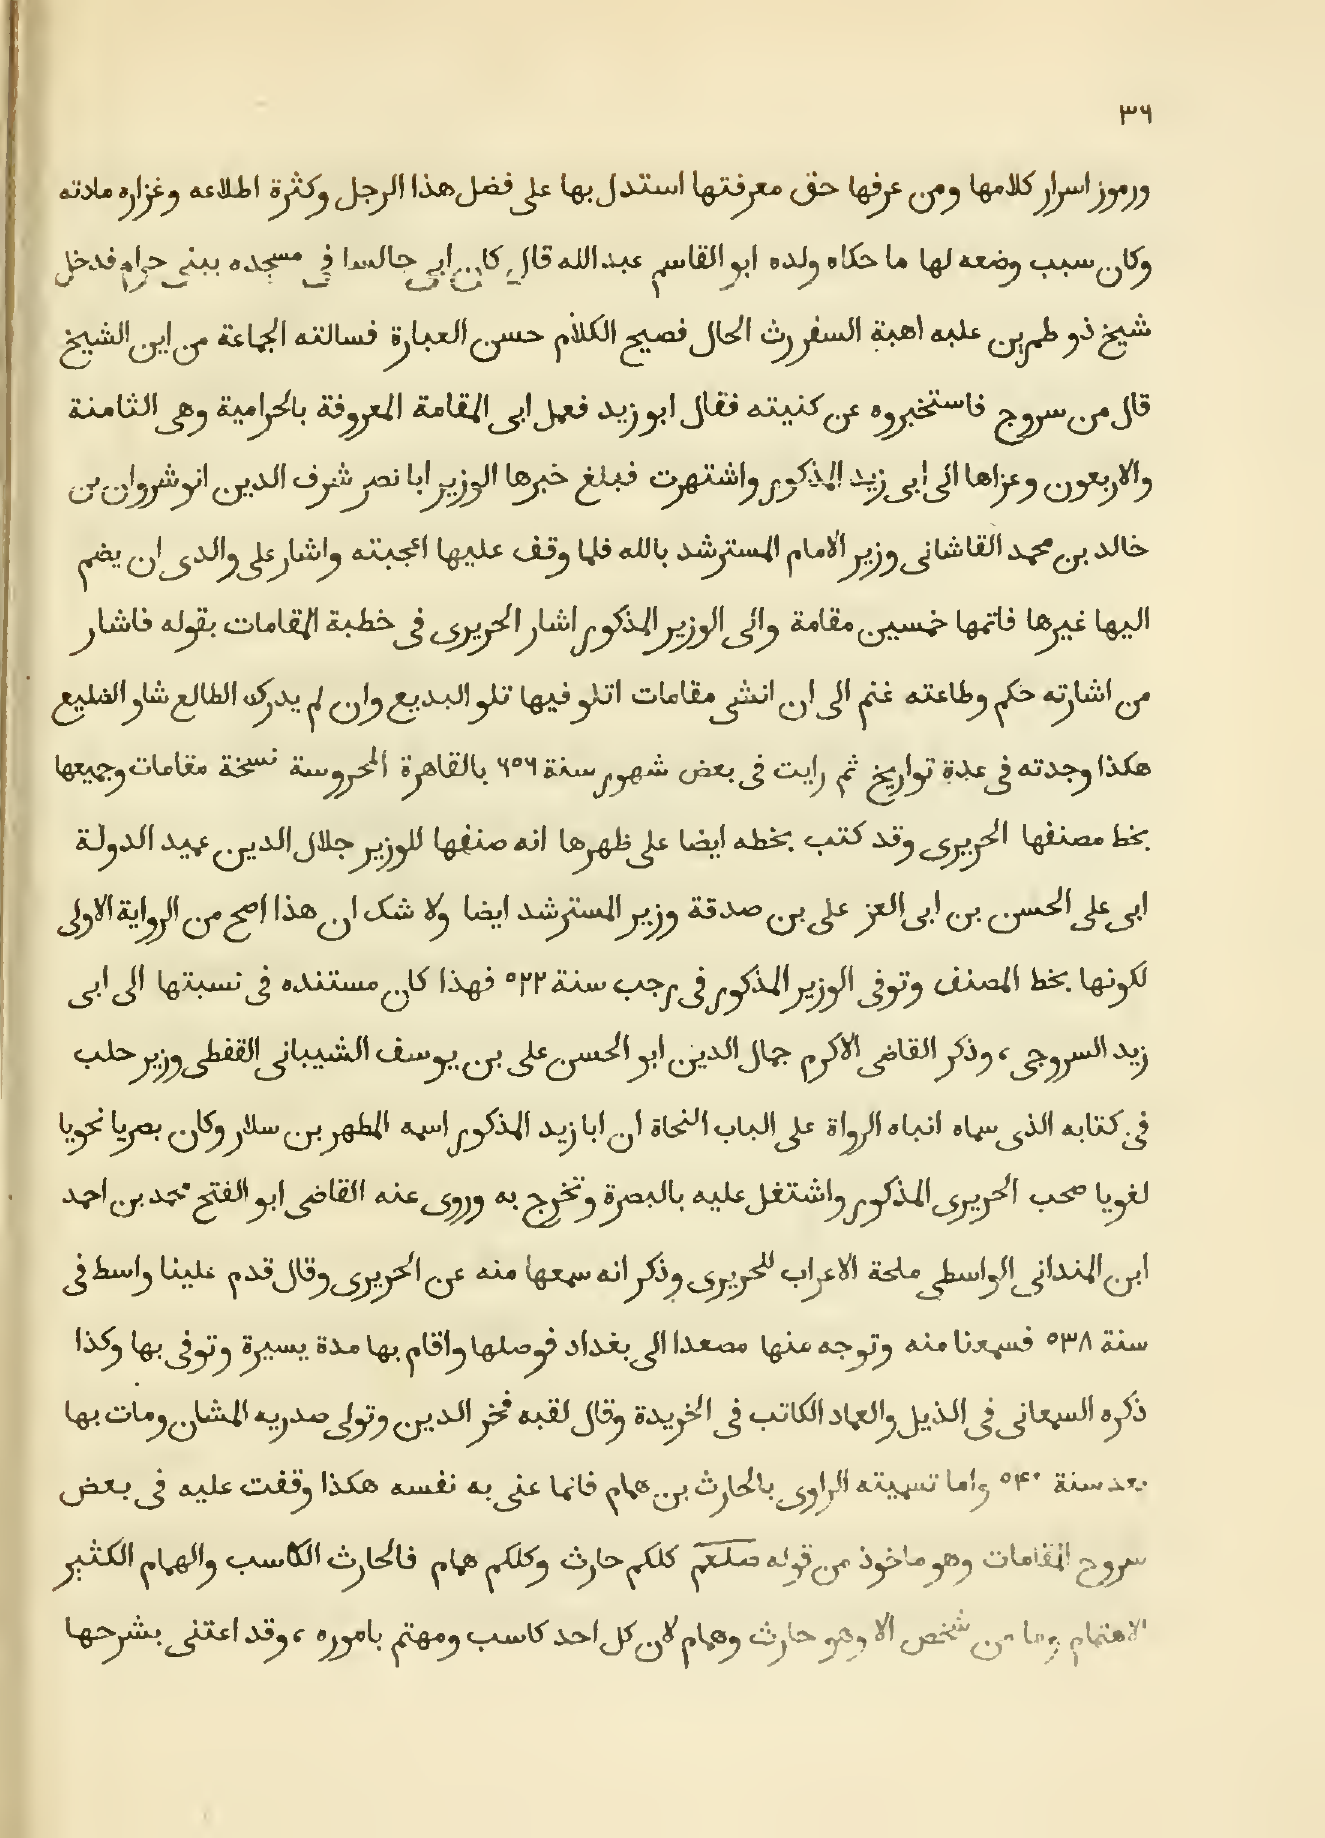 ٣٦
ورموز اسرار كلامها ومن عرفها حق معرفتها استدل بها على فضل هذا الرجل وكثرة اطلاعه وغزاره مادته
وكان سبب وضعه لها ما حكاه ولده ابو القاسم عبد الله قال كان ابى جالسا فى مسجده ببنى حرام فدخل
شيخ ذو طمرين عليه اهبة السفر رث الحال فصيح الكلام حسن العبارة فسالته الجماعة من اين الشيخ
قال من سروج فاستخبروه عن كنيته فقال ابو زيد فعمل ابى المقامة المعروفة بالحرامية وهى الثامنة
والاربعون وعزاها الى ابى زيد المذكور واشتهرت فبلغ خبرها الوزير ابا نصر شرف الدين انوشروان بن
خالد بن محمد القاشانى وزير الامام المسترشد بالله فلما وقف عليها اعجبته واشار على والدى ان يضم
اليها غيرها فاتمها خمسين مقامة والى الوزير المذكور اشار الحريرى فى خطبة المقامات بقوله فاشار
من اشارته حكم وطاعته غنم الى ان انشى مقامات اتلو فيها تلو البديع وان لم يدرك الطالع شاو الضليع
هكذا وجدته فى عدة تواريخ ثم رايت فى بعض شهور سنة ٦٥٦ بالقاهرة المحروسة نسخة مقامات وجميعها
بخط مصنفها الحريرى وقد كتب بخطه ايضا على ظهرها انه صنفها للوزير جلال الدين عميد الدولة
ابى على الحسن بن ابى العز على بن صدقة وزير المسترشد ايضا ولا شك ان هذا اصح من الرواية الاولى
لكونها بخط المصنف وتوفى الوزير المذكور فى رجب سنة ٥٢٢ فهذا كان مستنده فى نسبتها الى ابى
زيد السروجى، وذكر القاضى الاكرم جمال الدين ابو الحسن على بن يوسف الشيبانى القفطى وزير حلب
فى كتابه الذى سماه انباه الرواة على الباب النحاة ان ابا زيد المذكور اسمه المطهر بن سلار وكان بصريا نحويا
لغويا صحب الحريرى المذكور واشتغل عليه بالبصرة وتخرج به وروى عنه القاضى ابو الفتح محمد بن احمد
ابن المندانى الواسطى ملحة الاعراب للحريرى وذكر انه سمعها منه عن الحريرى وقال قدم علينا واسط فى
سنة ٥٣٨ فسمعنا منه وتوجه منها مصعدا الى بغداد فوصلها واقام بها مدة يسيرة وتوفى بها وكذا
ذكره السمعانى فى الذيل والعماد الكاتب فى الخريدة وقال لقبه فخر الدين وتولى صدريه المشان ومات بها
بعد سنة ٥۴٠ واما تسميته الراوى بالحارث بن همام فانما عنى به نفسه هكذا وقفت عليه فى بعض
سروح المقامات وهو ماخوذ من قوله صلعم كلكم حارث وكلكم همام فالحارث الكاسب والهمام الكثير
الاهتمام وما من شخص الا وهو حارث وهمام لان كل احد كاسب ومهتم باموره، وقد اعتنى بشرحها